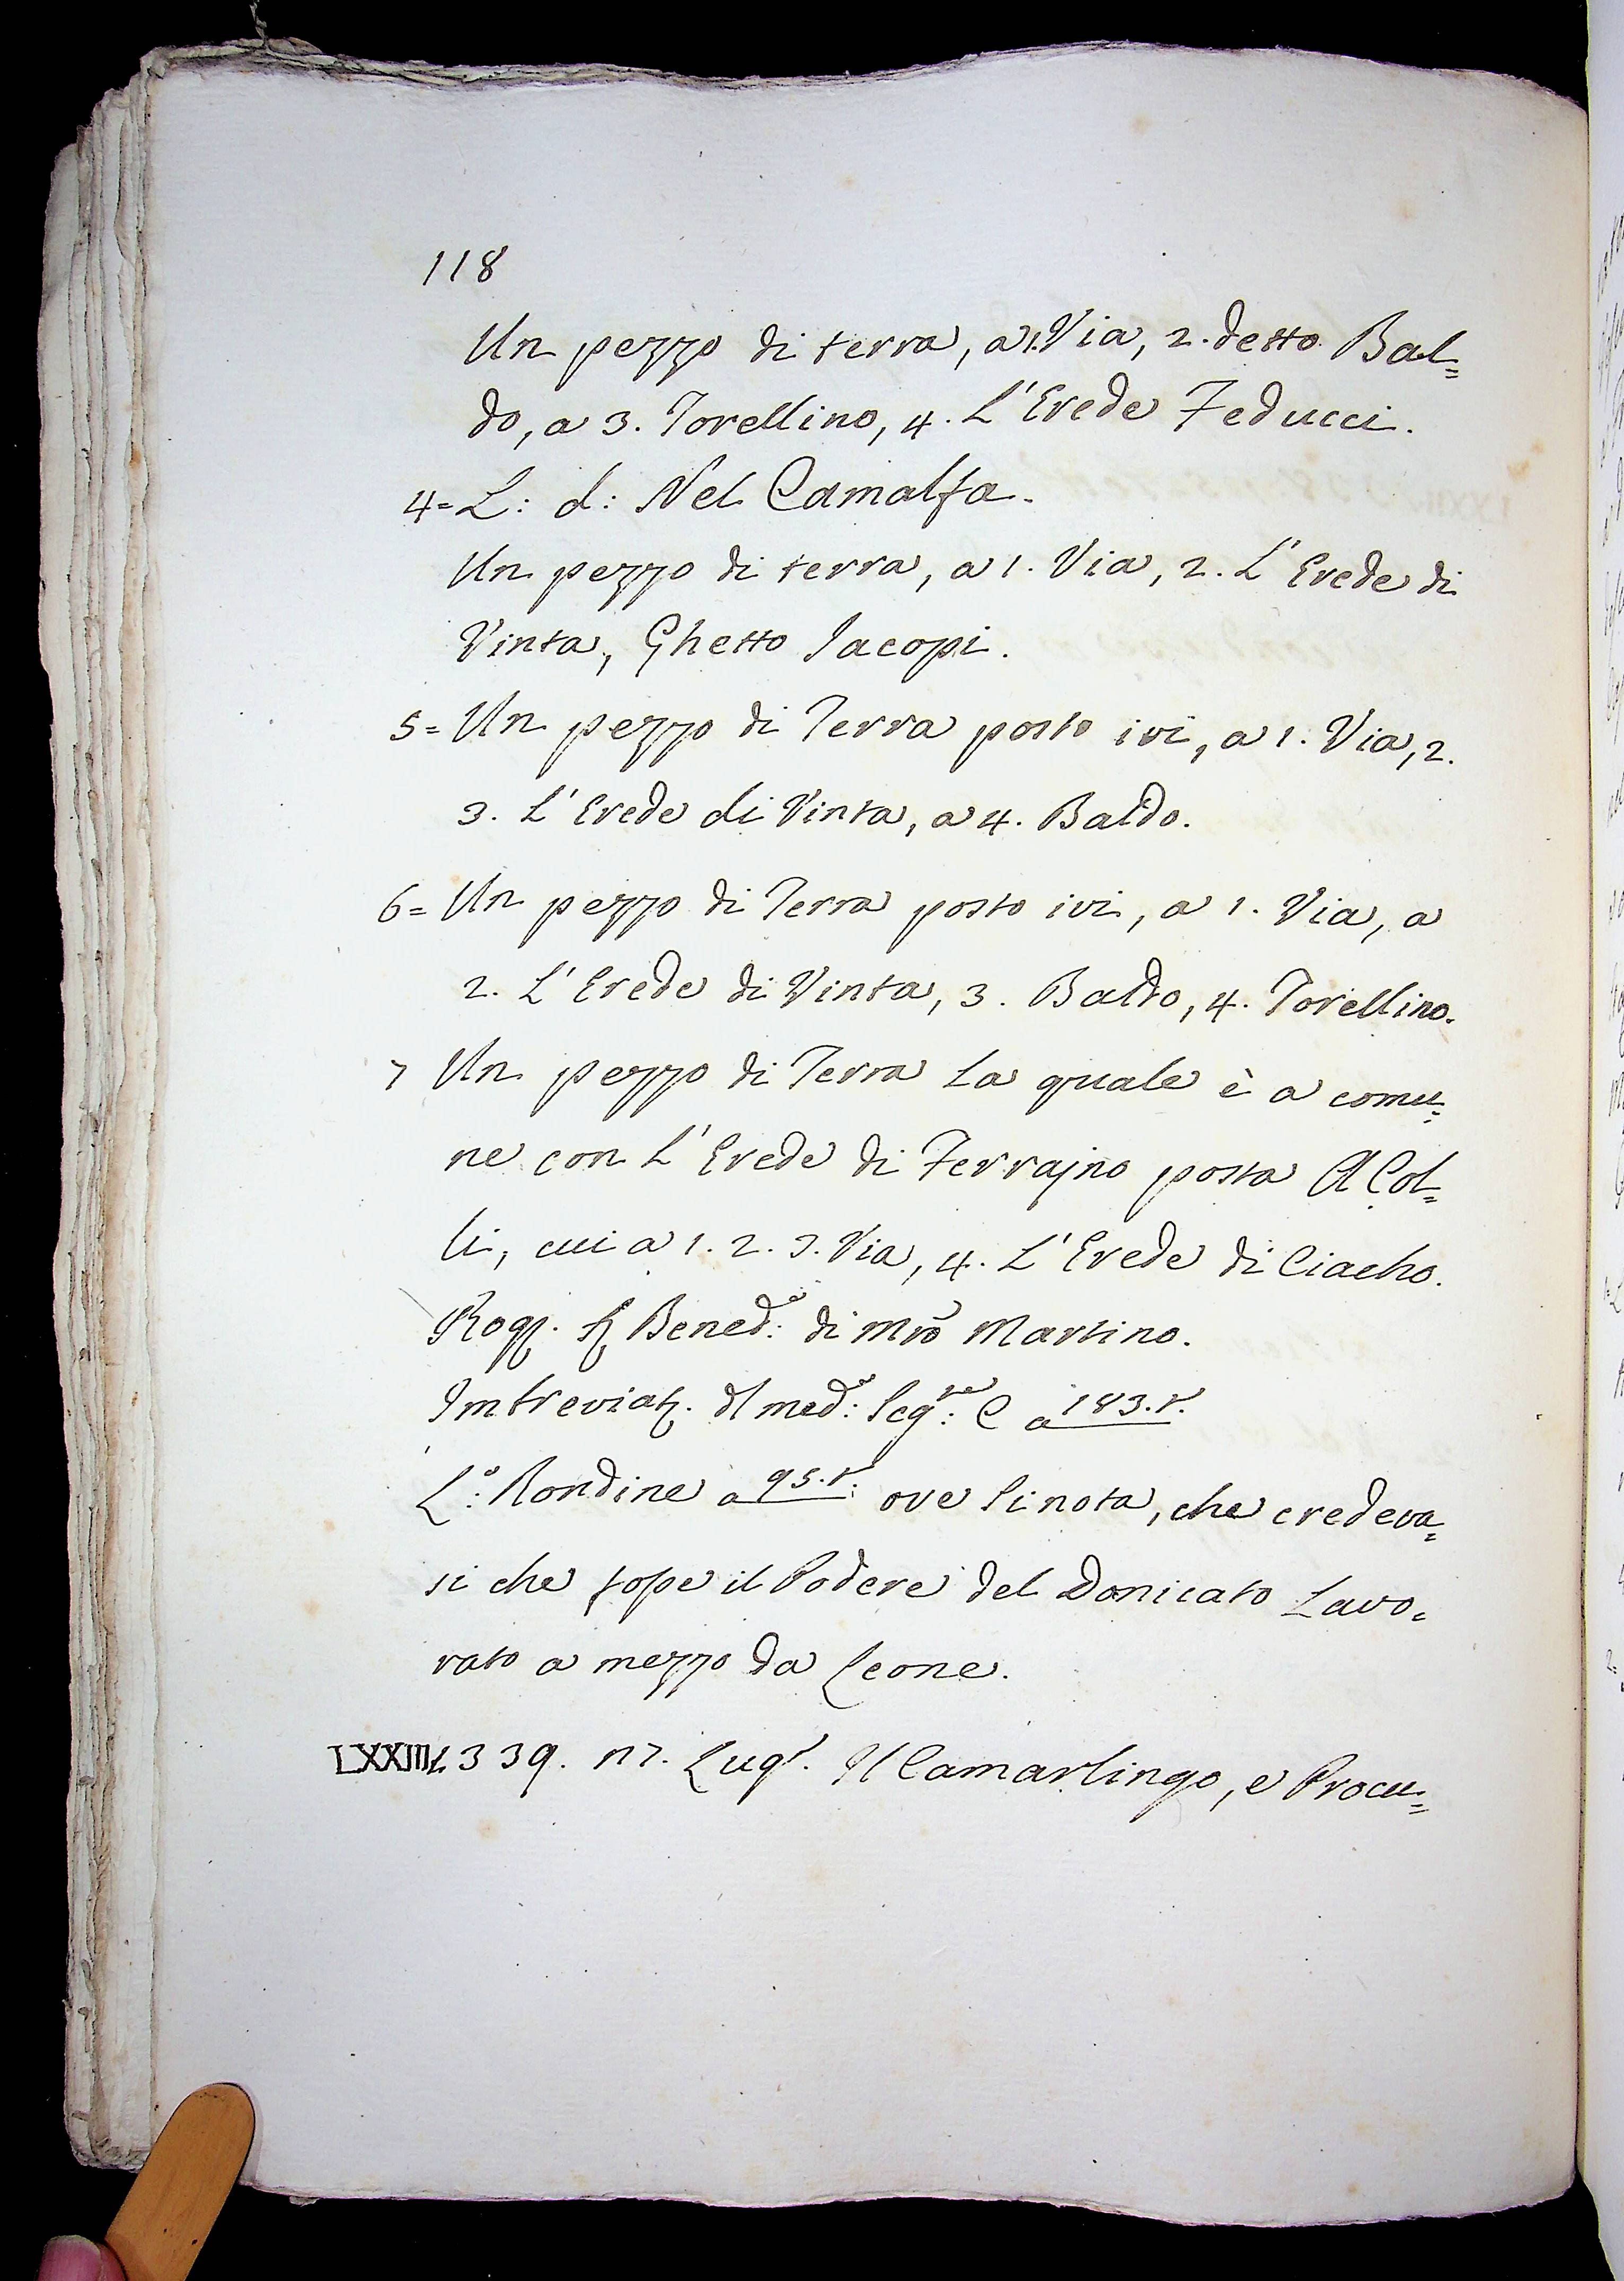 118
Un pezzo di terra, a 1. Via, 2. detto Bal=
do, a 3. Torellino, 4. L'Erede Feducci.
4= L: d: Nel Camalfa.
Un pezzo di terra, a 1. Via, 2. L'Erede di
Vinta, Ghetto Jacopi.
5= Un pezzo di Terra posto ivi, a 1. Via, 2.
3. L'Erede di Vinta, a 4. Baldo.
6= Un pezzo di Terra posto ivi, a 1. Via, a
2. L'Erede di Vinta, 3. Baldo, 4. Torellino.
7 Un pezzo di Terra La quale è a comu=
ne con L'Erede di Ferrajno posta A Col=
li, cui a 1. 2. 3. Via, 4. L'Erede di Ciacho.
Rog. Bened:º di Mrõ Martino.
Imbreviat. dl med:º Seg:re C a 183. r.
L:º Rondine a 95. r. ove si nota, che credeva=
si che fosse il Podere del Donicato Lavo=
rato a mezzo da Leone.
LXXIII 1339. 17. Lugº. Il Camarlingo, e Procu=